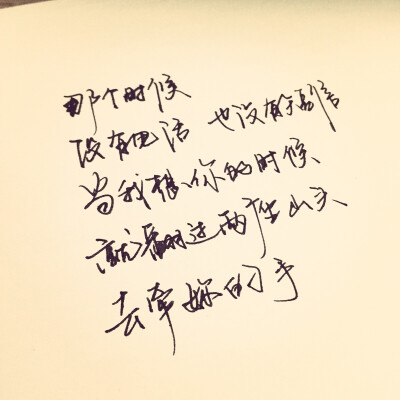 那个时候
没有电话 也没有短信
当我想你的时候
就翻过两座山头
去牵妳的手